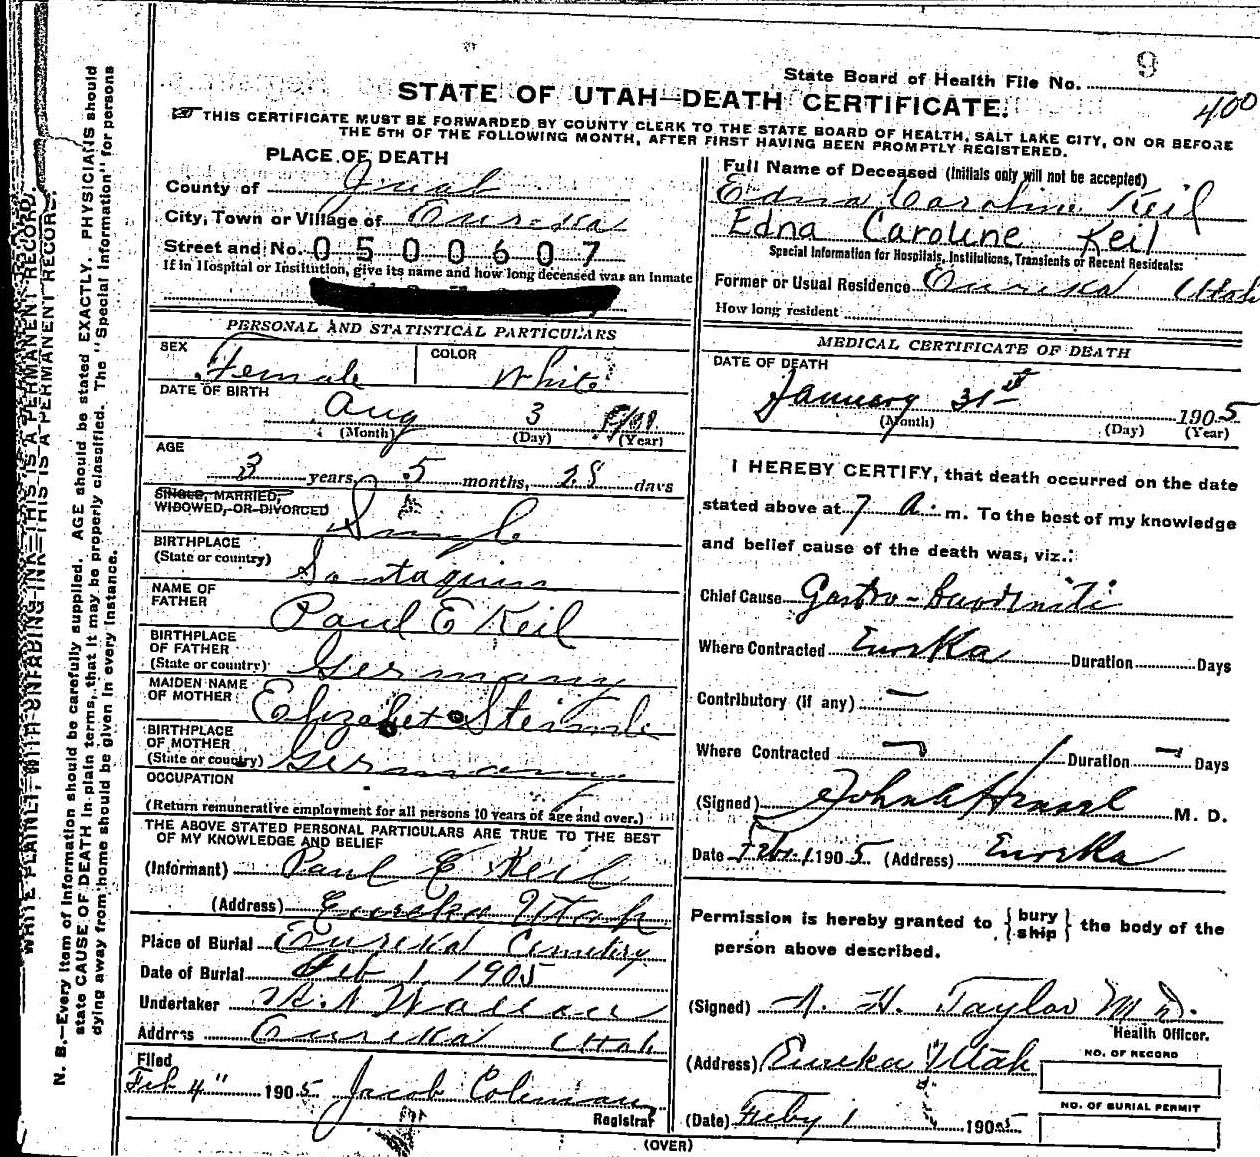 State Board of Health File No. 9
400
STATE OF UTAH—DEATH CERTIFICATE.
THIS CERTIFICATE MUST BE FORWARDED BY COUNTY CLERK TO THE STATE BOARD OF HEALTH, SALT LAKE CITY, ON OR BEFORE
THE 5TH OF THE FOLLOWING MONTH, AFTER FIRST HAVING BEEN PROMPTLY REGISTERED.
PLACE OF DEATH
County of Juab
City, Town or Village of Eureka
Street and No. 0500607
If in Hospital or Institution, give its name and how long deceased was an inmate
Full Name of Deceased (Initials only will not be accepted)
Edna Caroline Keil
Edna Caroline Keil
Special Information for Hospitals, Institutions, Transients or Recent Residents:
Former or Usual Residence Eureka Utah
How long resident
PERSONAL AND STATISTICAL PARTICULARS
SEX Female
COLOR White
DATE OF BIRTH
Aug 3
(Month) (Day) (Year)
AGE
3 years, 5 months, 28 days
SINGLE, MARRIED,
WIDOWED, OR DIVORCED Single
BIRTHPLACE
(State or country) Santaquin
NAME OF
FATHER Paul E Keil
BIRTHPLACE
OF FATHER
(State or country) Germany
MAIDEN NAME
OF MOTHER Elizabet
BIRTHPLACE
OF MOTHER
(State or country) Germany
OCCUPATION
(Return remunerative employment for all persons 10 years of age and over.)
THE ABOVE STATED PERSONAL PARTICULARS ARE TRUE TO THE BEST
OF MY KNOWLEDGE AND BELIEF
(Informant) Paul E Keil
(Address) Eureka Utah
Place of Burial Eureka Cemetery
Date of Burial Feb 1 1905
Undertaker
Address Eureka Utah
Filed
Feb 4" 1905 Jacob Coleman
Registrar
MEDICAL CERTIFICATE OF DEATH
DATE OF DEATH
January 31st 1905
(Month) (Day) (Year)
I HEREBY CERTIFY, that death occurred on the date
stated above at 7 A. m. To the best of my knowledge
and belief cause of the death was, viz.:
Chief Cause Gastro-
Where Contracted Eureka Duration Days
Contributory (if any) —
Where Contracted — Duration — Days
(Signed) M. D.
Date Febr. 1 1905. (Address) Eureka
Permission is hereby granted to {bury ship} the body of the
person above described.
(Signed) A. H. Taylor M D.
Health Officer.
(Address) Eureka Utah
NO. OF RECORD
(Date) Feby 1 1905
NO. OF BURIAL PERMIT
(OVER)
WRITE PLAINLY, WITH UNFADING INK—THIS IS A PERMANENT RECORD.
N. B.—Every item of information should be carefully supplied. AGE should be stated EXACTLY. PHYSICIANS should
state CAUSE OF DEATH in plain terms, that it may be properly classified. The "Special Information" for persons
dying away from home should be given in every instance.